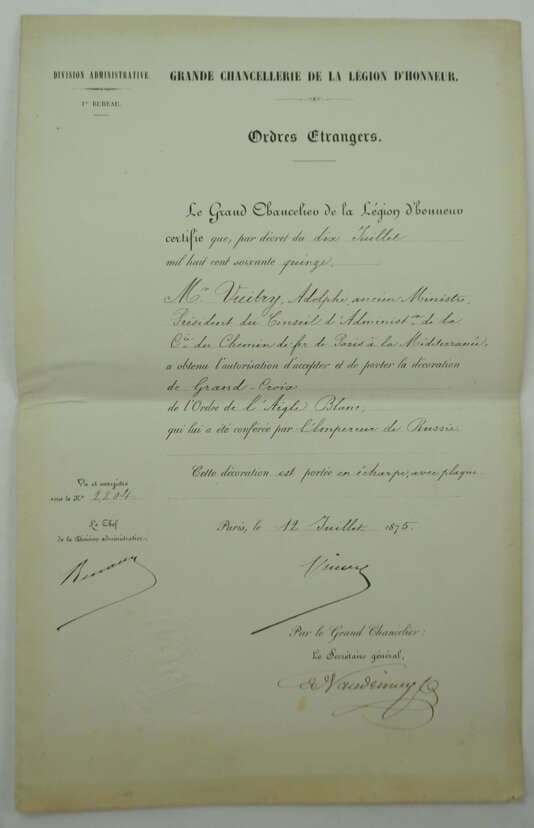 DIVISION ADMINISTRATIVE
1er BUREAU.
GRANDE CHANCELLERIE DE LA LÉGION D'HONNEUR.
Ordres Etrangers.
Le Grand Chancelier de la Légion d'honneur
certifie que, par décret du dix Juillet
mil huit cent soixante quinze,
Mr Vuitry, Adolphe, ancien Ministre,
Président du Conseil d'Administon de la
Cie du Chemin de fer de Paris à la Méditerranée,
a obtenu l'autorisation d'accepter et de porter la décoration
de Grand-Croix
de l'Ordre de l'Aigle Blanc,
qui lui a été conférée par l'Empereur de Russie.
Cette décoration est portée en écharpe, avec plaque.
Vu et enregistré
sous le No 2,204
Le Chef
de la Division administrative,
Paris, le 12 Juillet 1875
Par le Grand Chancelier:
Le Secrétaire général,